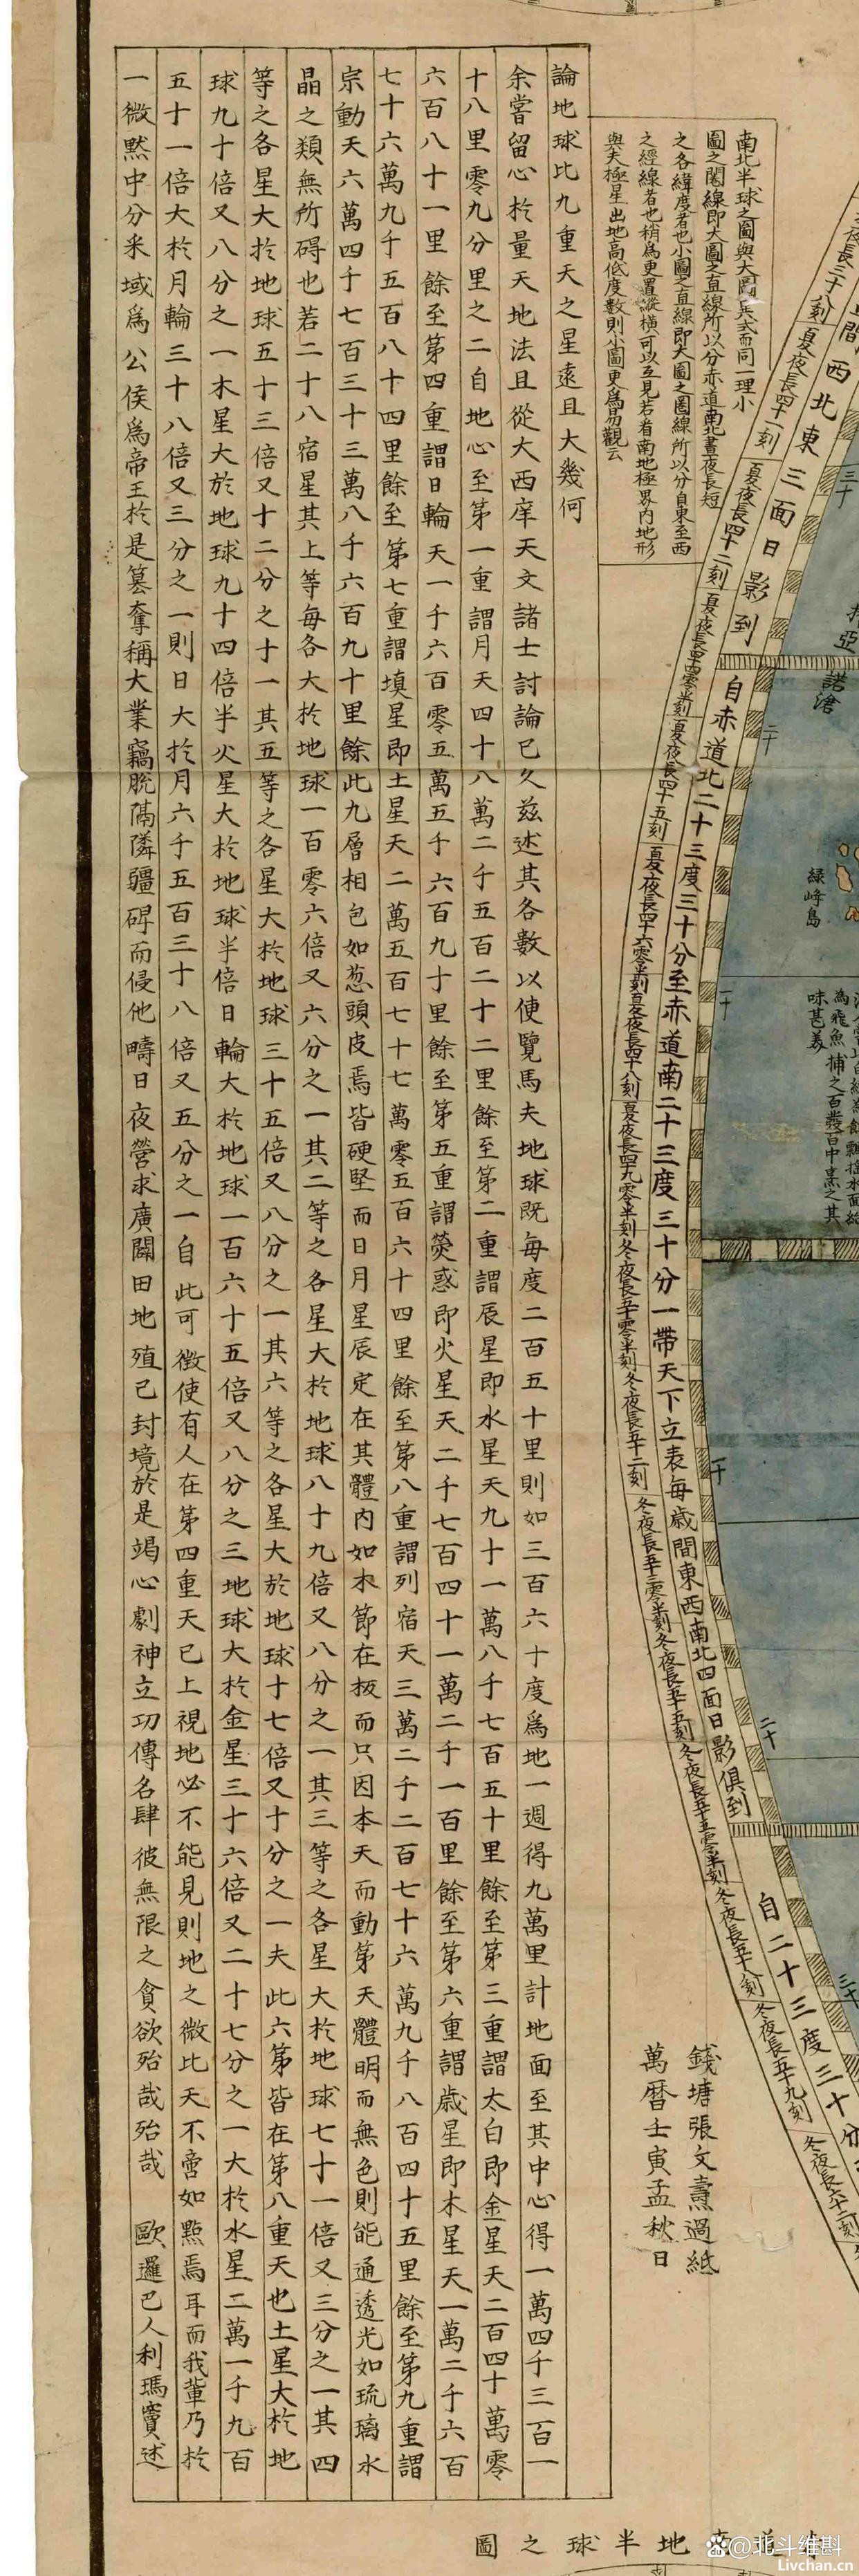 南北半球之圖與大圖異式而同一理小
圖之圈線即大圖之直線所以分赤道南北晝夜長短
之各緯度者也小圖之直線即大圖之圈線所以分自東至西
之經線者也稍為更置縱橫可以互見若看南地極界内地形
與夫極星出地高低度數則小圖更為易觀云
論地球比九重天之星遠且大幾何
余嘗留心於量天地法且從大西庠天文諸士討論已久茲述其各數以使覽馬夫地球既每度二百五十里則如三百六十度爲地一週得九萬里計地面至其中心得一萬四千三百一
十八里零九分里之二自地心至第一重謂月天四十八萬二千五百二十二里餘至第二重謂辰星即水星天九十一萬八千七百五十里餘至第三重謂太白即金星天二百四十萬零
六百八十一里餘至第四重謂日輪天一千六百零五萬五千六百九十里餘至第五重謂熒惑即火星天二千七百四十一萬二千一百里餘至第六重謂歲星即木星天一萬二千六百
七十六萬九千五百八十四里餘至第七重謂填星即土星天二萬五百七十七萬零五百六十四里餘至第八重謂列宿天三萬二千二百七十六萬九千八百四十五里餘至第九重謂
宗動天六萬四千七百三十三萬八千六百九十里餘此九層相包如葱頭皮焉皆硬堅而日月星辰定在其體内如木節在板而只因本天而動第天體明而無色則能通透光如琉璃水
晶之類無所碍也若二十八宿星其上等每各大於地球一百零六倍又六分之一其二等之各星大於地球八十九倍又八分之一其三等之各星大於地球七十一倍又三分之一其四
等之各星大於地球五十三倍又十二分之十一其五等之各星大於地球三十五倍又八分之一其六等之各星大於地球十七倍又十分之一夫此六第皆在第八重天也土星大於地
球九十倍又八分之一木星大於地球九十四倍半火星大於地球半倍日輪大於地球一百六十五倍又八分之三地球大於金星三十六倍又二十七分之一大於水星二萬一千九百
五十一倍大於月輪三十八倍又三分之一則日大於月六千五百三十八倍又五分之一自此可徵使有人在第四重天已上視地必不能見則地之微比天不啻如點焉耳而我輩乃於
一微點中分采域爲公侯爲帝王於是篡奪稱大業竊脱隔隣疆碑而侵他疇日夜營求廣闢田地殖己封境於是竭心劇神立功傳名肆彼無限之貪欲殆哉殆哉 歐邏巴人利瑪竇述
錢塘張文燾過紙
萬曆壬寅孟秋日
三面日影到
自赤道北二十三度三十分至赤道南二十三度三十分一帶天下立表每歲間東西南北四面日影俱到
自二十三度三十分
夏夜長三十八刻
夏夜長四十一刻
夏夜長四十二刻
夏夜長四十四零半刻
夏夜長四十五刻
夏夜長四十六零半刻
夏夜長四十八刻
夏夜長四十九零半刻
冬夜長五十零半刻
冬夜長五十二刻
冬夜長五十三零半刻
冬夜長五十五刻
冬夜長五十五零半刻
冬夜長五十八刻
冬夜長五十九刻
冬夜長六十二刻
三十
二十
一十
一十
二十
三十
綠峰島
為飛魚捕之百發百中黑之其
味甚美
南地半球之圖
@北斗维斟
Livchan.cn